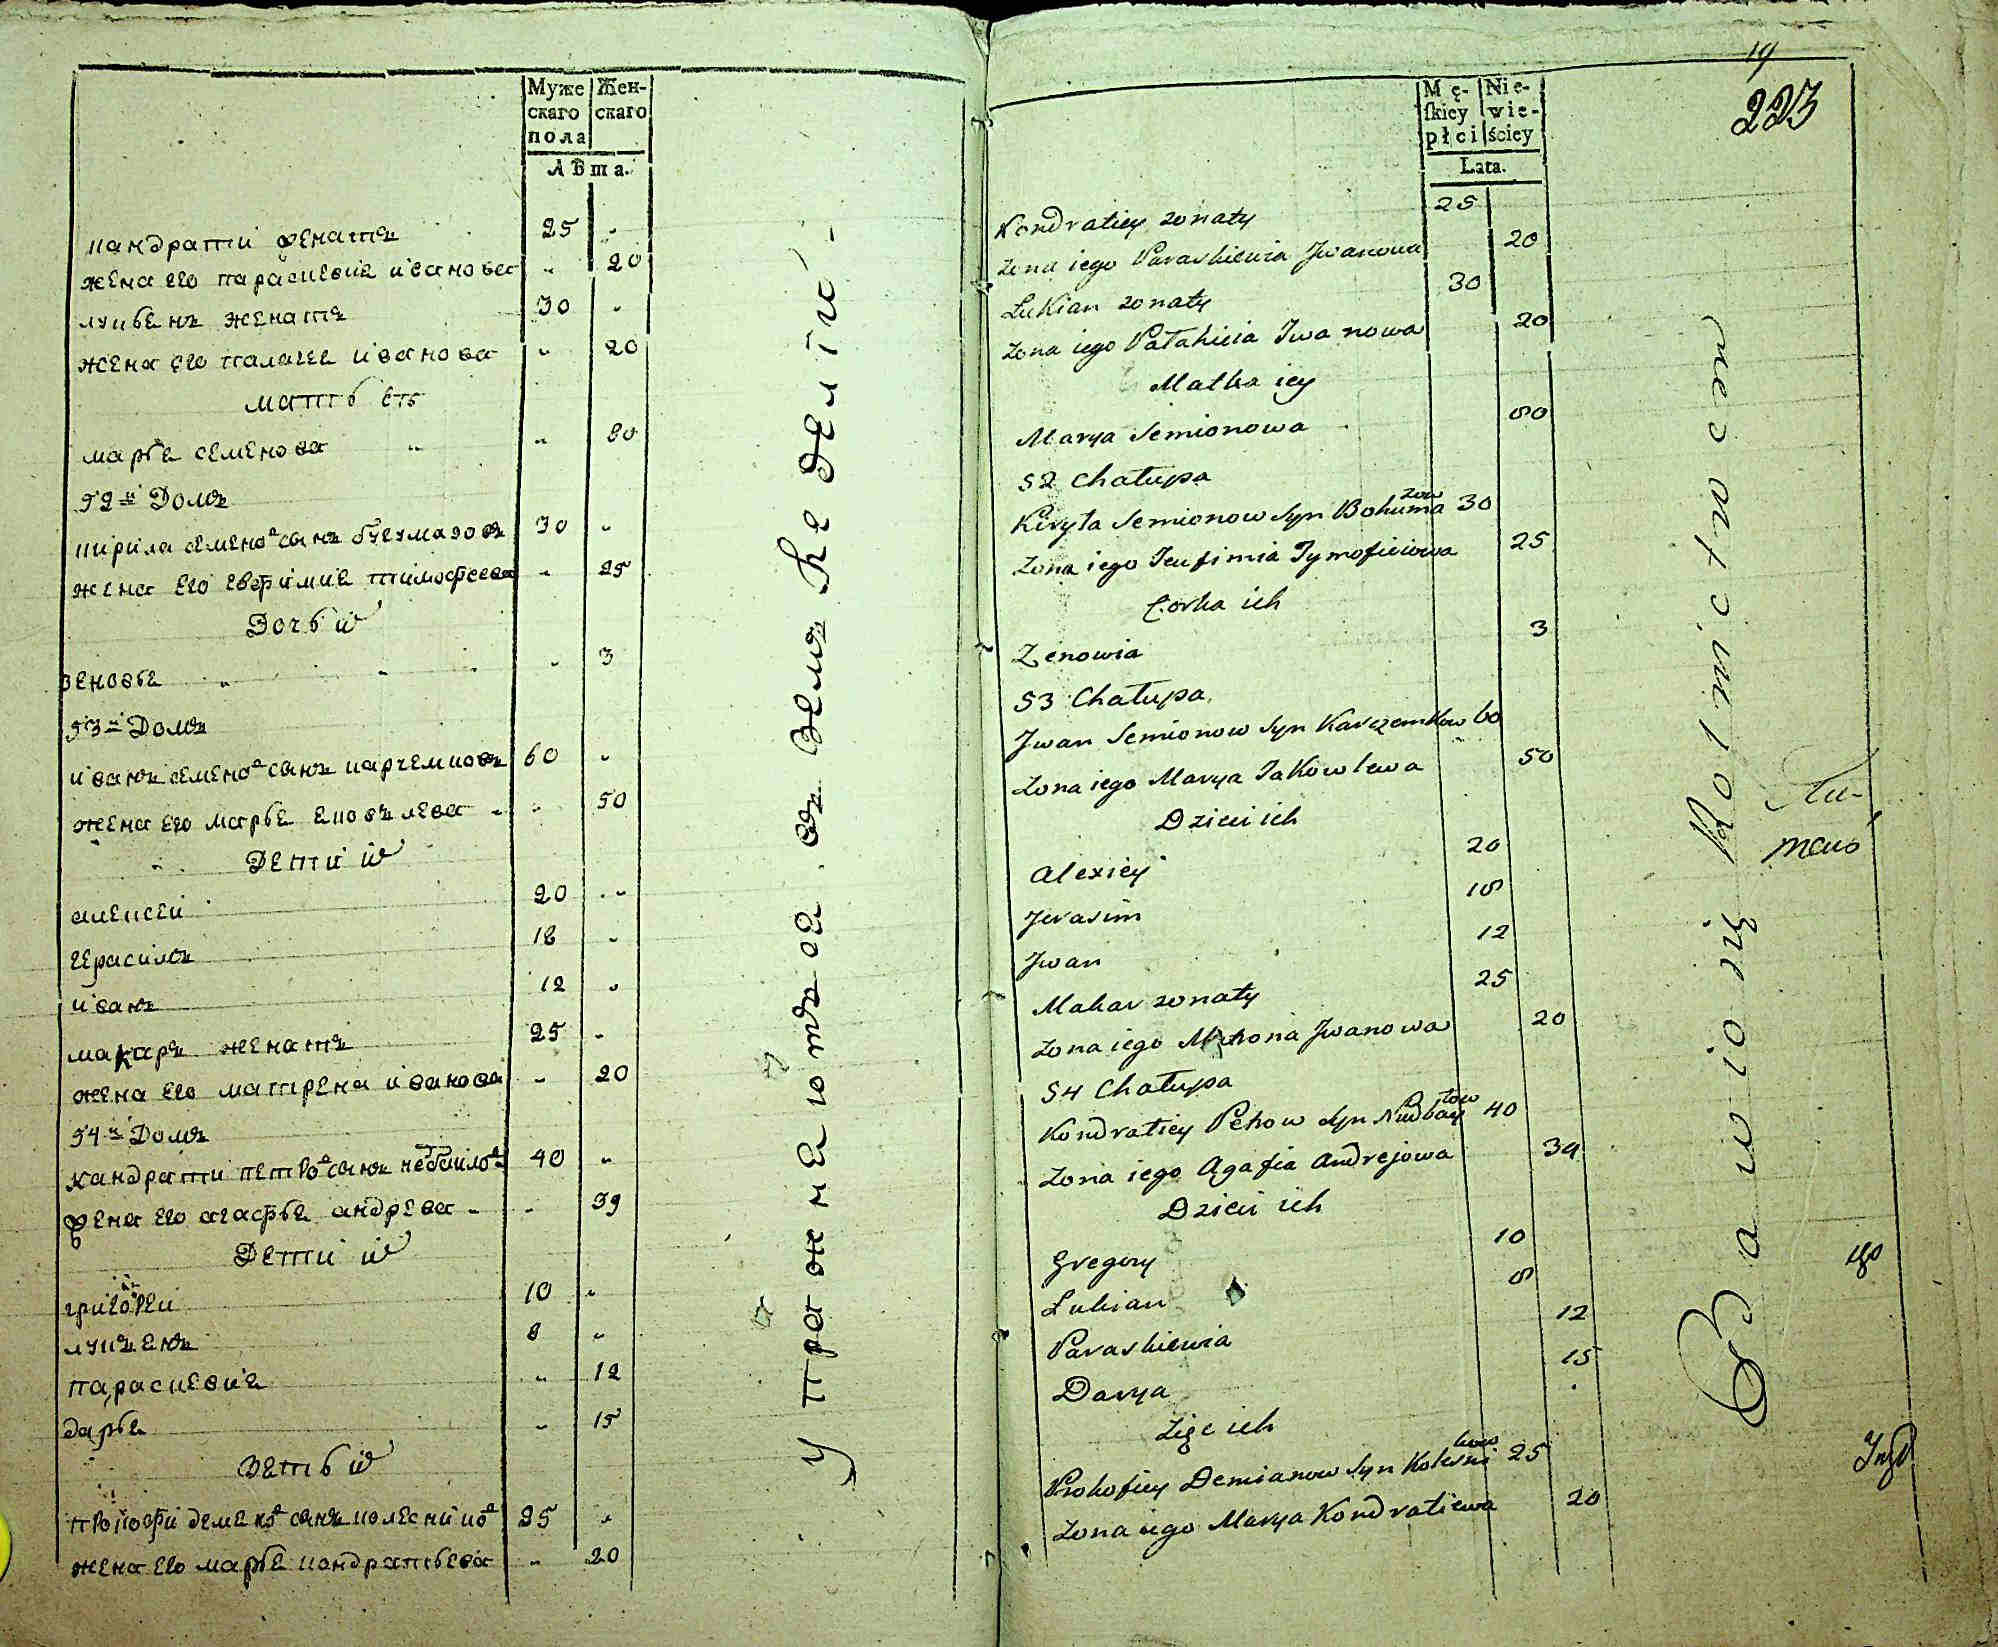 Муже
скаго
пола
Жен-
скаго
Лѣта.
кандрати женатъ 25 "
жена его парасковиѧ иванова " 20
лукьѧнъ женатъ 30 "
жена его палагеѧ иванова " 20
мать его
марьѧ семенова " 80
52й Домъ
кирила семеновъ сынъ 30 "
жена его евфимиѧ тимофеева " 25
Дочь ихъ
зеновьѧ " 3
53й Домъ
иванъ семеновъ сынъ карчемковъ 60 "
жена его марьѧ ѧковълева " 50
Дети ихъ
алексеи 20 "
герасимъ 18 "
иванъ 12 "
макаръ женатъ 25 "
жена его матрена иванова " 20
54й Домъ
кандрати петровъ сынъ 40 "
жена его агафьѧ андрева " 39
Дети ихъ
григореи 10 "
лукъѧнъ 8 "
парасковиѧ " 12
дарьѧ " 15
Зеть ихъ
прокофи деменовъ сынъ колесниковъ 25 "
жена его марьѧ кондратьева " 20
упражнѧютъсѧ въ земледелiи
19
223
Mę-
ſkiey
płci
Nie-
wie-
ściey
Lata.
Kondratiey zonaty 25
Zona iego Paraskiewia Jwanowa 20
Łukian zonaty 30
Zona iego Jwanowa 20
Matka iey
Marya Semionowa 80
52 Chałupa
Kiryła Semionow Syn Bohumazow 30
Zona iego Jeufimia Tymofieiowa 25
Corka ich
Zenowia 3
53 Chałupa
Jwan Semionow Syn Karczemkow 60
Zona iego Marya Jakowlewa 50
Dzieci ich
Alexiey 20
Jerasim 18
Jwan 12
Makar zonaty 25
Zona iego Matrona Jwanowa 20
54 Chałupa
Kondratiey Petrow Syn 40
Zona iego Agafia Andrejowa 39
Dzieci ich
Gregory 10
Łukian 8
Paraskiewia 12
Darya 15
Zięc ich
Prokofiey Demianow Syn Kolesnikow 25
Zona iego Marya Kondratiewa 20
Bawio się Rolnictwem